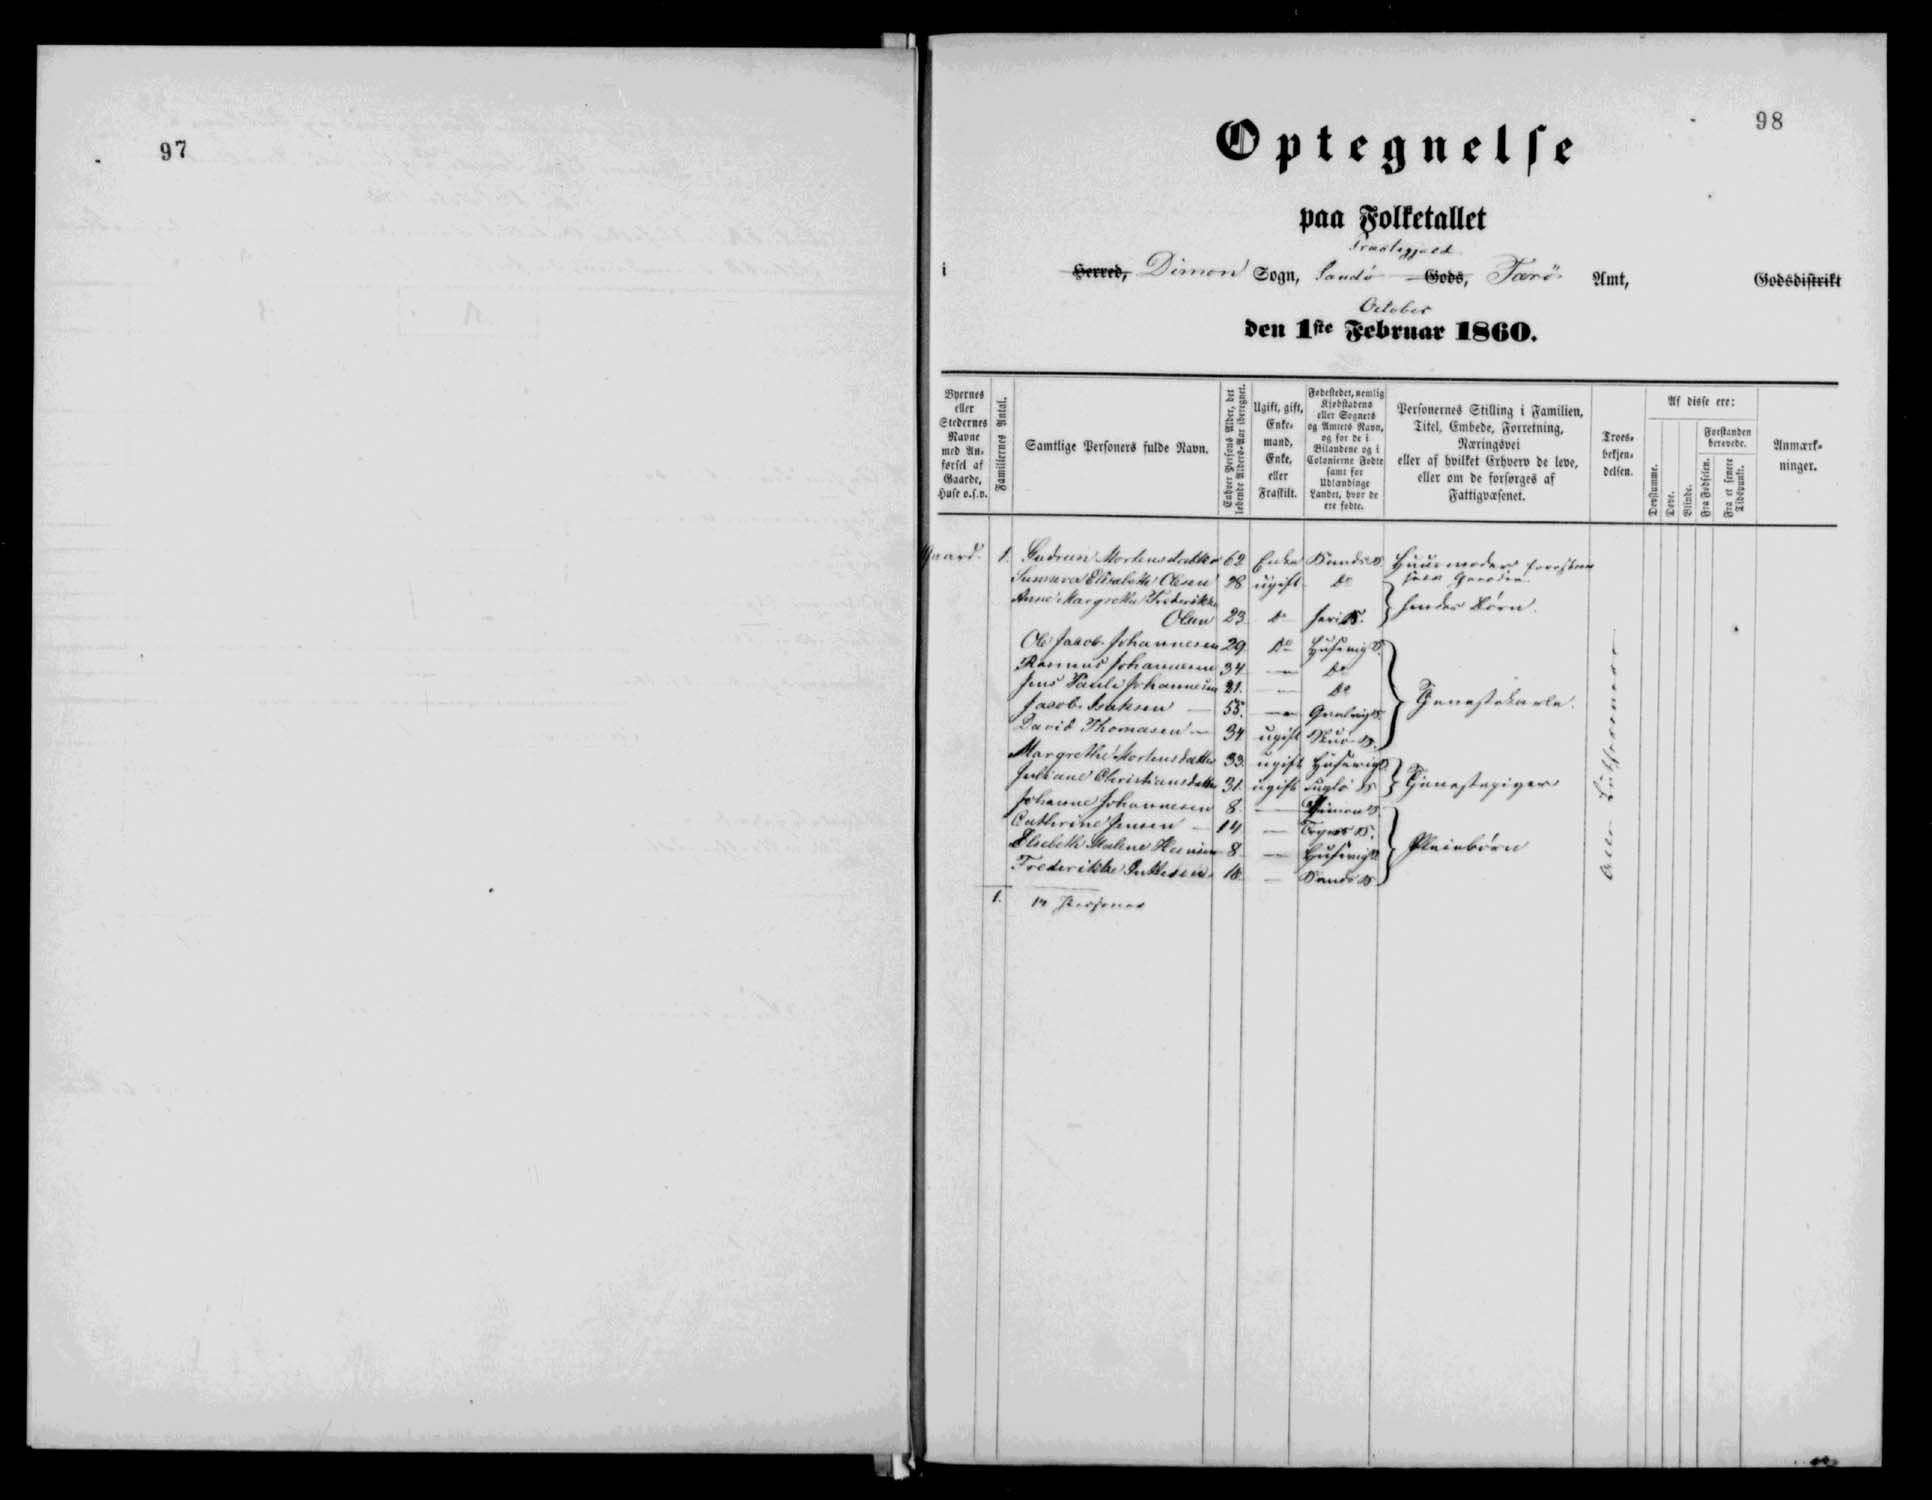 97
98
Optegnelse
paa Folketallet
Præstegjæld
i Herred, Dimon Sogn, Sandø Gods, Færø Amt, Godsdistrikt
October
den 1ste Februar 1860.
Byernes eller Stedernes Navne med Anførsel af Gaarde, Huse o.s.v.
Familiernes Antal.
Samtlige Personers fulde Navn.
Enhver Persons Alder, det løbende Alders-Aar iberegnet.
Ugift, gift, Enkemand, Enke, eller Fraskilt.
Fødestedet, nemlig Kjøbstadens eller Sognets og Amtets Navn, og for de i Bilandene og i Colonierne Fødte samt for Udlændinge Landet, hvor de ere fødte.
Personernes Stilling i Familien, Titel, Embede, Forretning, Næringsvei eller af hvilket Erhverv de leve, eller om de forsørges af Fattigvæsenet.
Troesbekjendelsen.
Af disse ere:
Døvstumme.
Døve.
Blinde.
Forstanden berøvede.
Fra Fødselen.
Fra et senere Tidspunkt.
Anmærkninger.
Gaard. 1. Gudrun Mortensdatter 62 Enke Sands S. Huusmoder forestaaer
Sunneva Elisabeth Olesen 28 ugift do
Anne Margrethe Frederikke
Olesen 23 do S. hendes Børn.
Ole Jacob Johannesen 29 do Husevig S.
Rasmus Johannesen 34 — do
Jens Pauli Johannesen 21. — do Tjenestekarle.
Jacob Isaksen — 55. — Qvalvig S.
David Thomasen — 34 ugift S.
Margrethe Mortensdatter 33. ugift Husevig S.
Juliane Christiansdatter 31. ugift Fuglø S Tjenestepiger
Johanne Johannesen 8. — Dimon S.
Cathrine Jensen — 14 — S.
Elsebeth Malene Hansen 8 — Husevig S Pleiebørn
Frederikke 18. — Sands S.
Alle Lutheraner
1. 14 Personer